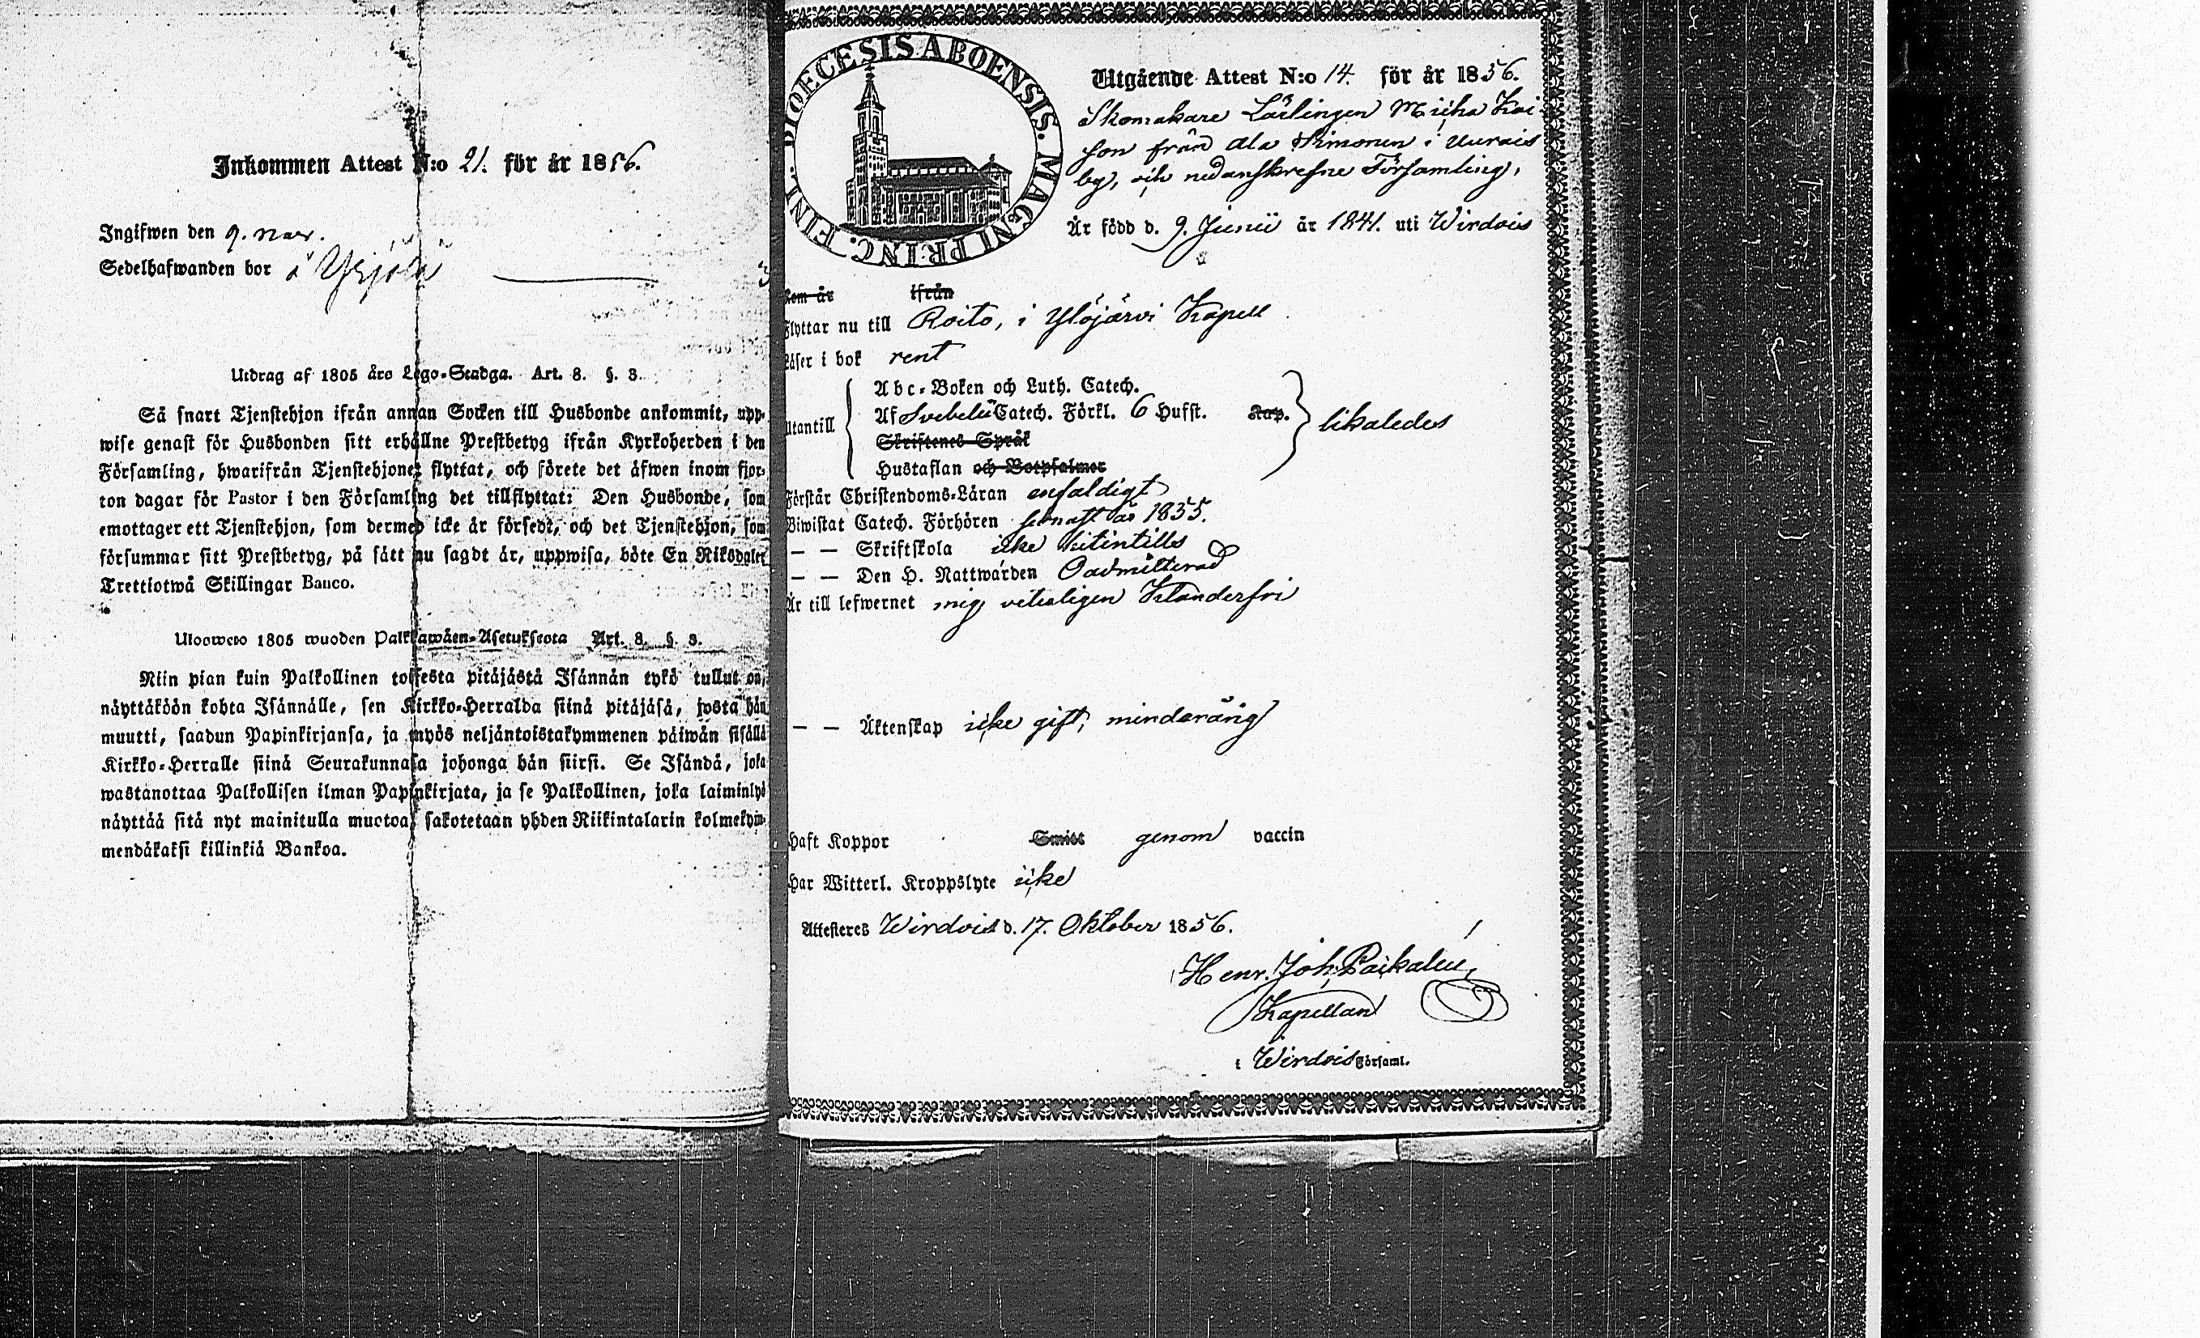 Inkommen Attest N:o 21. för år 1856.
Ingifwen den 9. Nov.
Sedelhafwanden bor å Yrjölä
Utdrag af 1805 års Lego-Stadga. Art. 8. §. 3.
Så snart Tjenstehjon ifrån annan Socken till Husbonde ankommit, upp-
wise genast för Husbonden sitt erhållne Prestbetyg ifrån Kyrkoherden i den
Församling, hwarifrån Tjenstehjonet flyttat, och förete det äfwen inom fjor-
ton dagar för Pastor i den Församling det tillflyttat: Den Husbonde, som
emottager ett Tjenstehjon, som dermed icke är försedt, och det Tjenstehjon, som
försummar sitt Prestbetyg, på sätt nu sagdt är, uppwisa, böte En Riksdaler
Trettiotwå Skillingar Banco.
Ulosweto 1805 wuoden Palkkawäen-Asetuksesta Art. 8. §. 3.
Niin pian kuin Palkollinen toisesta pitäjästä Isännän tykö tullut on,
näyttäköön kohta Isännälle, sen Kirkko-Herralda siinä pitäjäsä, josta hän
muutti, saadun Papinkirjansa, ja myös neljäntoistakymmenen päiwän sisällä
Kirkko-Herralle siinä Seurakunnasa johonga hän siirsi. Se Isändä, joka
wastanottaa Palkollisen ilman Papinkirjata, ja se Palkollinen, joka laiminlyö
näyttää sitä nyt mainitulla muotoa, sakotetaan yhden Riikintalarin kolmekym-
mendäkaksi killinkiä Bankoa.
DIOECESIS ABOENSIS. MAGNI PRINC. FINL.
Utgående Attest N:o 14. för år 1856.
Skomakare Lärlingen Micha Kai-
son från Ala Simonen i Uurais
by, och nedanskrefne Församling,
Är född d. 9. Junii år 1841. uti Wirdois
Kom år ifrån
Flyttar nu till Roito, i Ylöjärvi Kapell
Läser i bok rent
Utantill
Abc-Boken och Luth. Catech.
Af Svebelii Catech. Förkl. 6 Hufst. Kap.
Skriftenes Språk
Hustaflan och Botpsalmer
likaledes
Förstår Christendoms-Läran enfaldigt
Biwistat Catech. Förhören senast år 1855.
— — Skriftskola icke hitintills
— — Den H. Nattwarden Oadmitterad
Är till lefwernet mig veterligen Klanderfri
— — Äktenskap icke gift, minderårig
Haft Koppor Smitt genom vaccin
Har Witterl. Kroppslyte icke
Attesteres Wirdois d. 17. Oktober 1856.
Henr. Joh.
Kapellan
i Wirdois Församl.